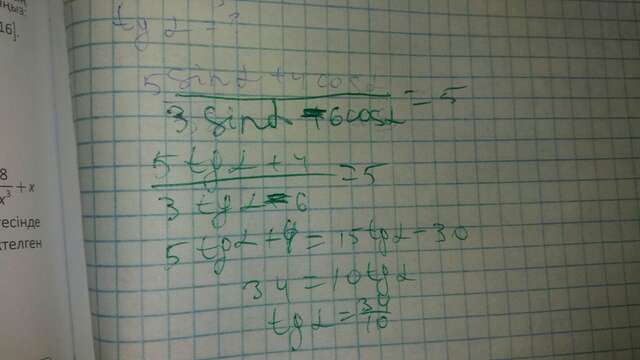 ңыз:
16].
8
x³ + x
тесінде
ктелген
tg α = ?
5 sin α + 4 cos α
3 sin α - 6 cos α = 5
5 tg α + 4
3 tg α - 6 = 5
5 tg α + 4 = 15 tg α - 30
34 = 10 tg α
tg α = 34/10